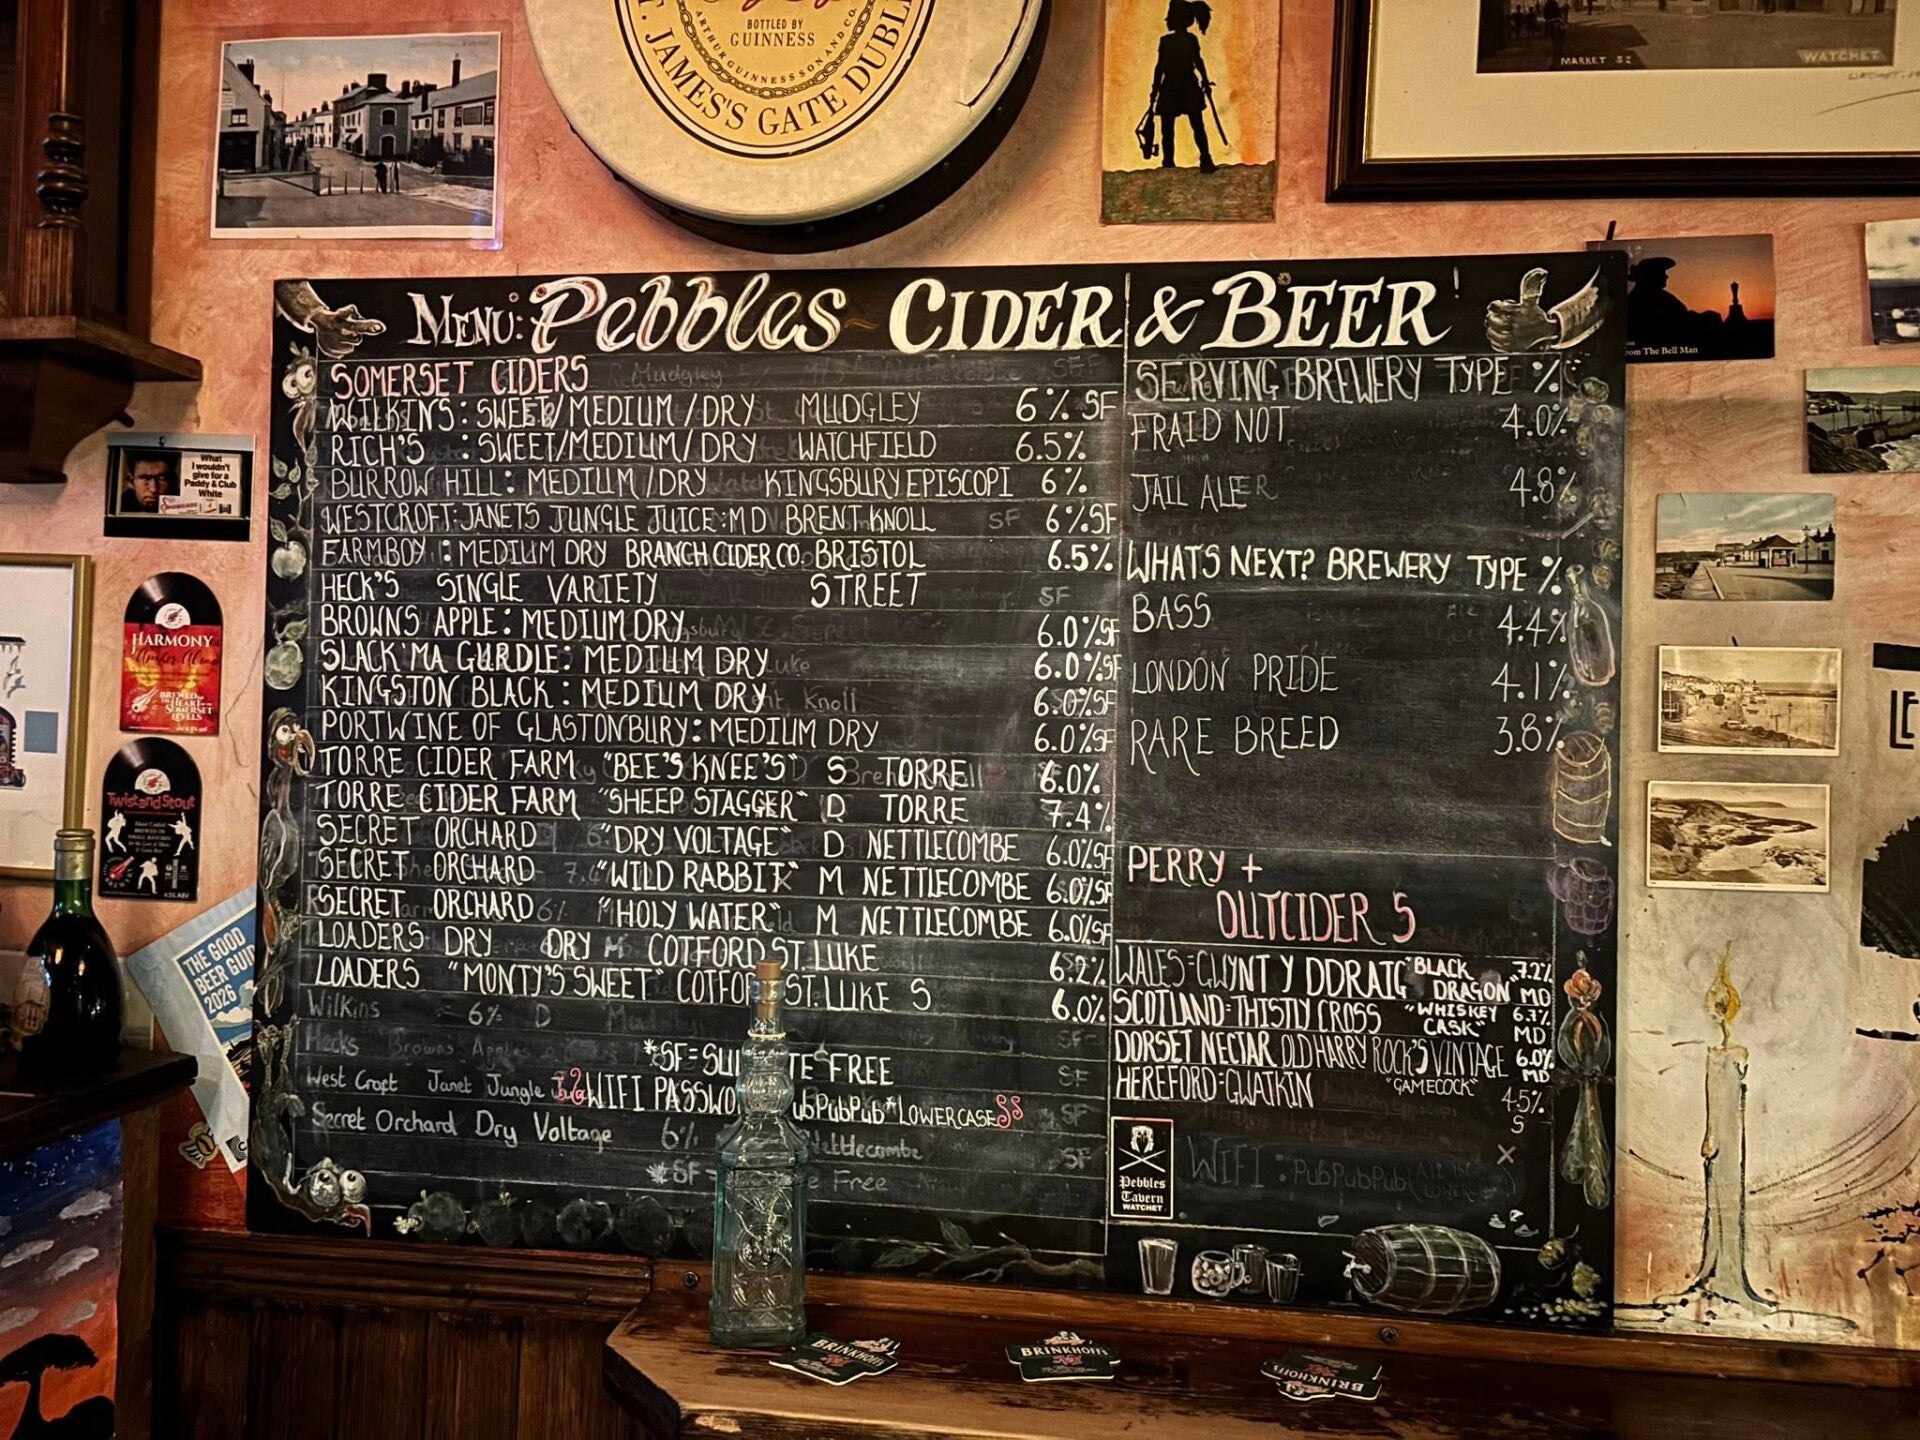 BOTTLED BY
GUINNESS
ARTHUR GUINNESS SON AND CO.
JAMES'S GATE DUBLIN
MARKET ST
WATCHET
From The Bell Man
What
I wouldn't
give for a
Paddy & Club
White
HARMONY
BREWED IN
THE HEART OF THE
SOMERSET
LEVELS
Twist and Stout
THE GOOD
BEER GUIDE
2026
MENU: Pebbles CIDER & BEER!
SOMERSET CIDERS
WILKINS: SWEET/MEDIUM/DRY MUDGLEY 6% SF
RICH'S : SWEET/MEDIUM/DRY WATCHFIELD 6.5%
BURROW HILL: MEDIUM/DRY KINGSBURY EPISCOPI 6%
WESTCROFT: JANETS JUNGLE JUICE: MD BRENT KNOLL SF 6% SF
FARMBOY : MEDIUM DRY BRANCH CIDER CO. BRISTOL 6.5%
HECK'S SINGLE VARIETY STREET SF
BROWNS APPLE: MEDIUM DRY 6.0% SF
SLACK'MA GURDLE: MEDIUM DRY 6.0% SF
KINGSTON BLACK: MEDIUM DRY 6.0% SF
PORTWINE OF GLASTONBURY: MEDIUM DRY 6.0% SF
TORRE CIDER FARM "BEE'S KNEE'S" S TORRE 6.0%
TORRE CIDER FARM "SHEEP STAGGER" D TORRE 7.4%
SECRET ORCHARD "DRY VOLTAGE" D NETTLECOMBE 6.0% SF
SECRET ORCHARD "WILD RABBIT" M NETTLECOMBE 6.0% SF
SECRET ORCHARD "HOLY WATER" M NETTLECOMBE 6.0% SF
LOADERS DRY DRY COTFORD ST. LUKE 6.2%
LOADERS "MONTY'S SWEET" COTFO ST. LUKE S 6.0%
Wilkins 6% D
Hecks Browns Apple SF
*SF=SUL TE FREE
West Croft Janet Jungle SF
WIFI PASSWO ubPubPub* LOWERCASE
Secret Orchard Dry Voltage 6% Nettlecombe SF
*SF = e Free
SERVING BREWERY TYPE %
FRAID NOT 4.0%
JAIL ALE 4.8%
WHATS NEXT? BREWERY TYPE %
BASS 4.4%
LONDON PRIDE 4.1%
RARE BREED 3.8%
PERRY +
OUTCIDER S
WALES=GWYNT Y DDRAIG "BLACK DRAGON" 7.2% MD
SCOTLAND=THISTLY CROSS "WHISKEY CASK" 6.7% MD
DORSET NECTAR OLD HARRY ROCK'S VINTAGE 6.0% MD
HEREFORD=GWATKIN "GAMECOCK" 4.5% S
WIFI : PubPubPub
Pebbles
Tavern
WATCHET
BRINKHOFF'S
BRINKHOFF'S
BRINKHOFF'S